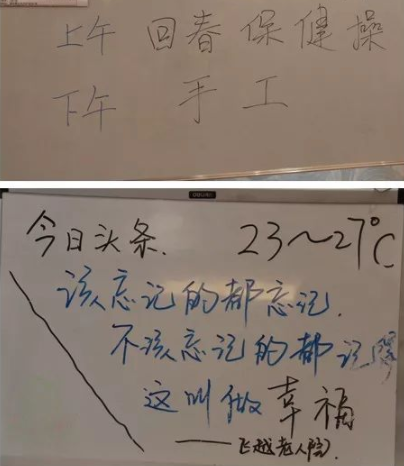 上午 回春保健操
下午 手工
今日头条. 23~27℃
该忘记的都忘记.
不该忘记的都记得
这叫做幸福
——飞越老人院